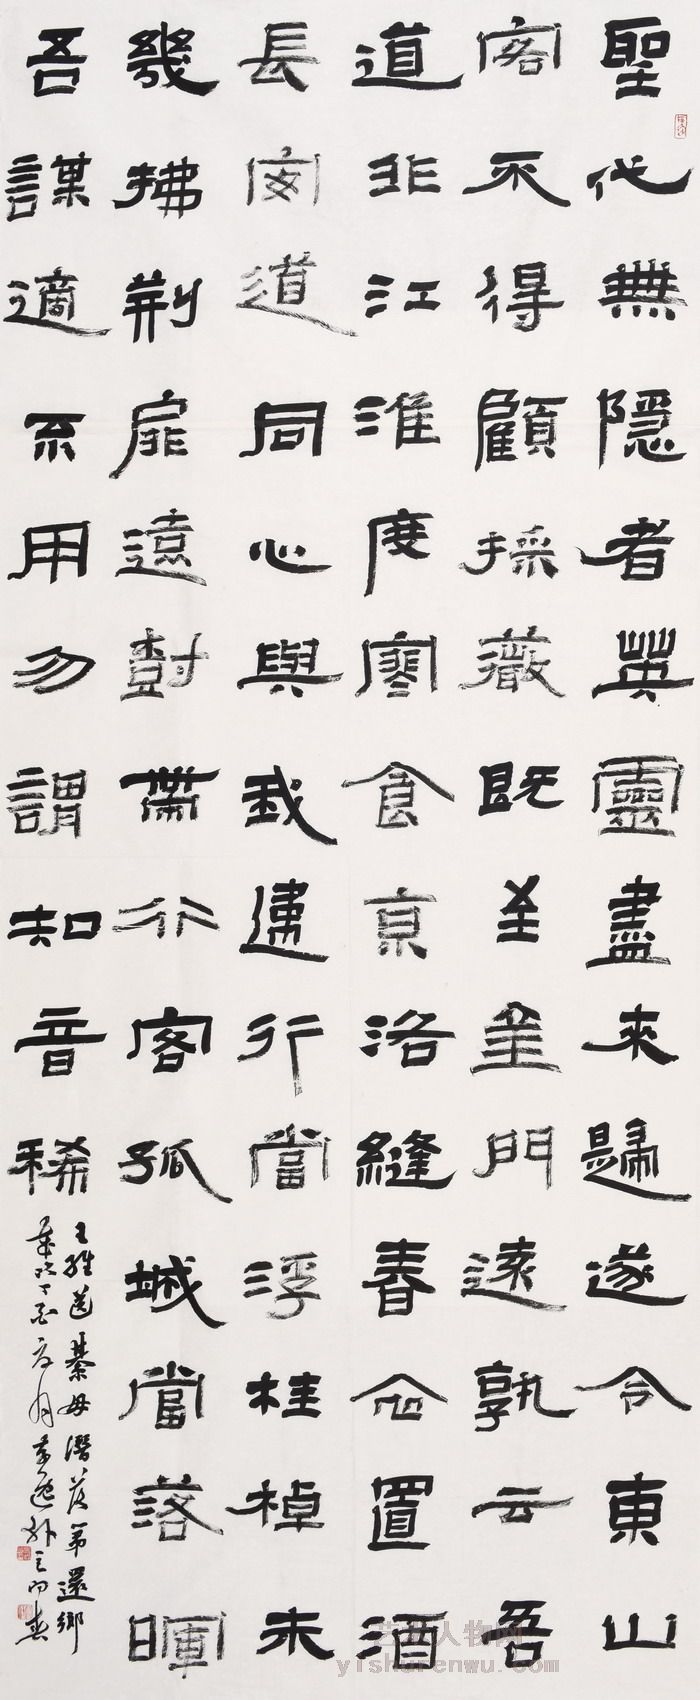 聖代無隱者英靈盡來歸遂令東山
客不得顧採薇既至金門遠孰云吾
道非江淮度寒食京洛縫春衣置酒
長安道同心與我違行當浮桂棹未
幾拂荊扉遠樹帶行客孤城當落暉
吾謀適不用勿謂知音稀
王維送綦母潛落第還鄉
丁酉
艺术人物网
yishurenwu.com